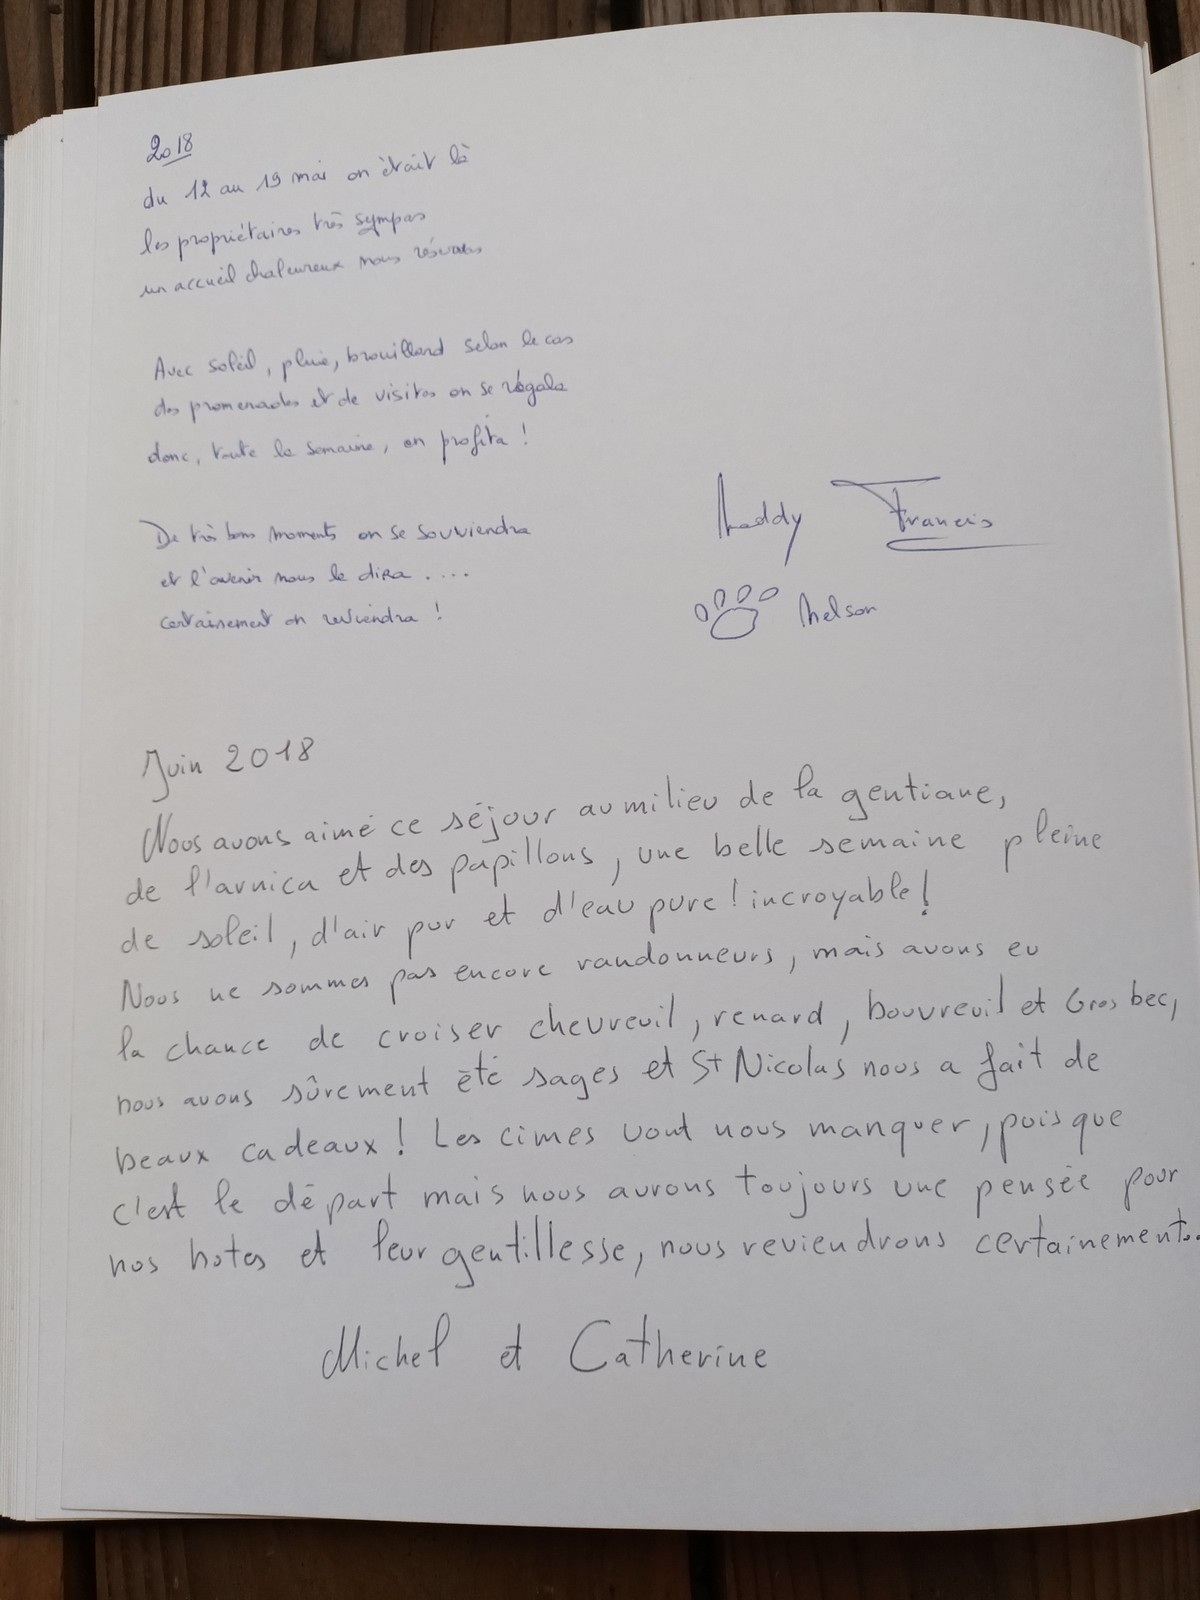 2018
du 12 au 19 mai on était là
les propriétaires très sympas
un accueil chaleureux nous réserva
Avec soleil, pluie, brouillard selon le cas
des promenades et de visites on se régala
donc, toute la semaine, on profita !
De très bons moments on se souviendra
et l'avenir nous le dira ....
certainement on reviendra !
Francis
Nelson
Juin 2018
Nous avons aimé ce séjour au milieu de la gentiane,
de l'arnica et des papillons, une belle semaine pleine
de soleil, d'air pur et d'eau pure ! incroyable !
Nous ne sommes pas encore randonneurs, mais avons eu
la chance de croiser chevreuil, renard, bouvreuil et Gros bec,
nous avons sûrement été sages et St Nicolas nous a fait de
beaux cadeaux ! Les cimes vont nous manquer, puis que
c'est le départ mais nous aurons toujours une pensée pour
nos hotes et leur gentillesse, nous reviendrons certainement..
Michel et Catherine